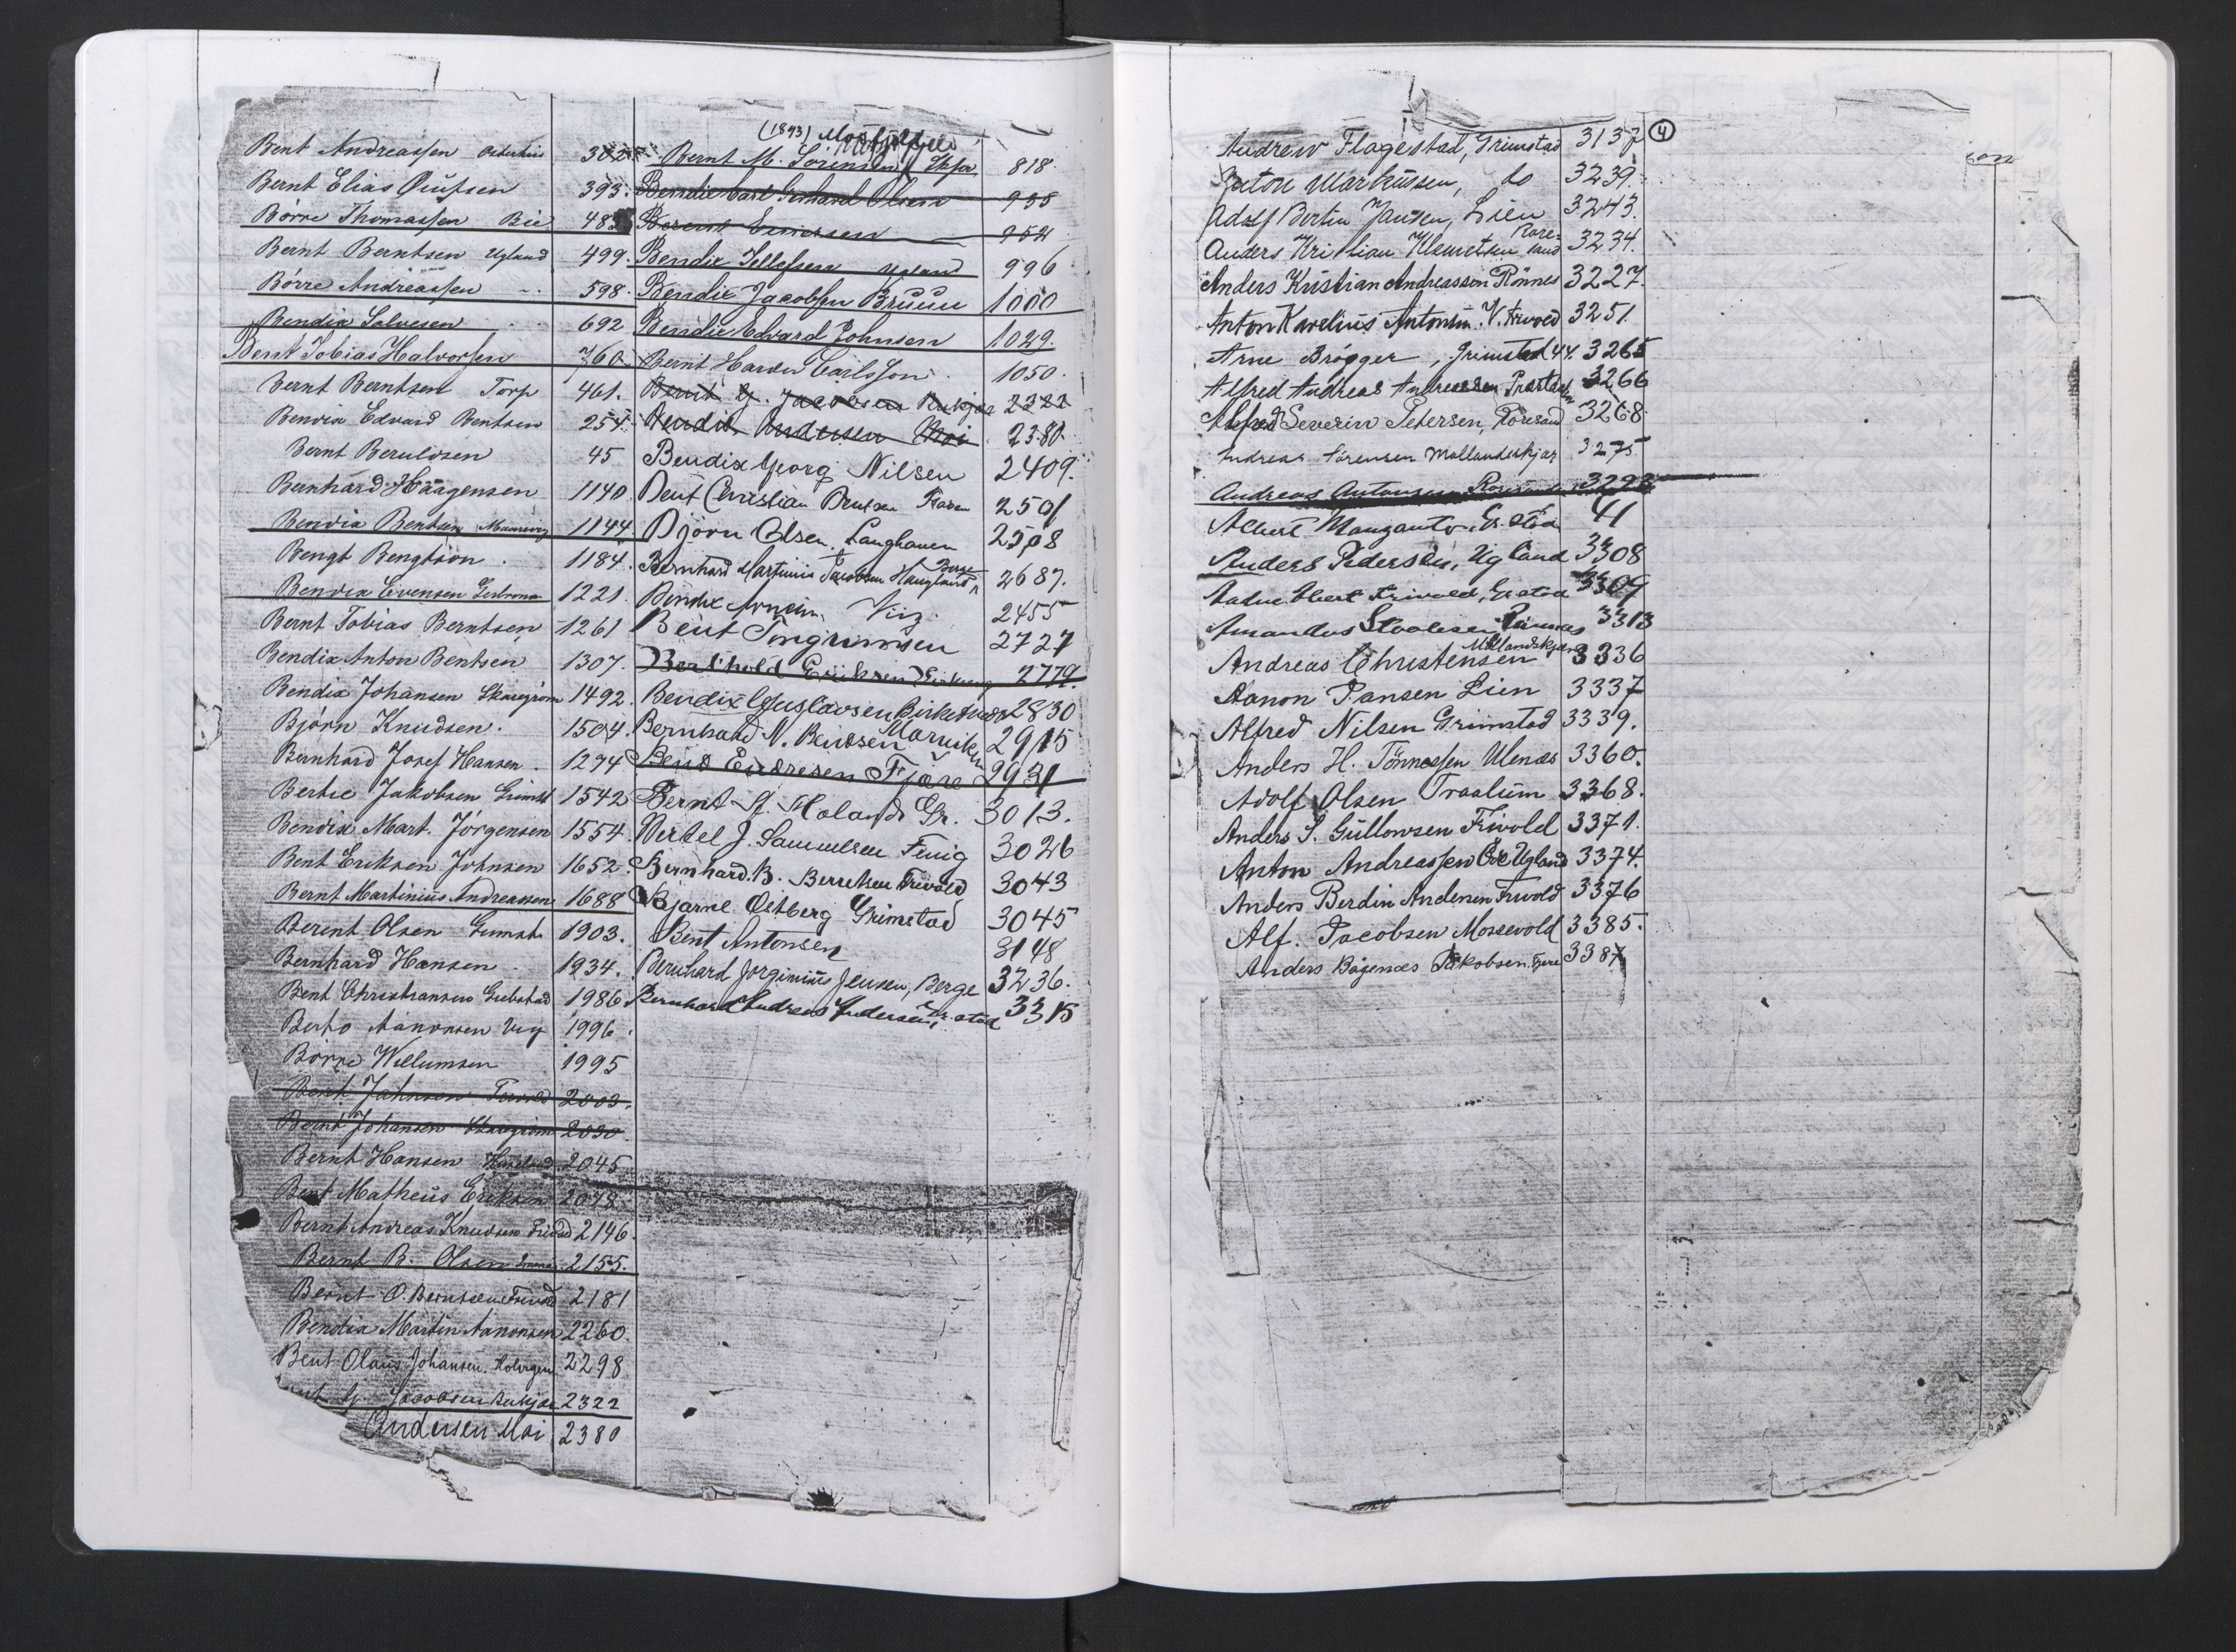 Bent Andreassen Østerhus 302
Bernt Elias Olufsen 393.
Børre Thomassen Bie 483
Bernt Berntsen Ugland 499.
Børre Andreassen 598.
Bendix Salvesen 692
Bent Tobias Halvorsen 760
Bernt Berntsen Torp 461.
Bendix Edvard Bentsen 254.
Bernt Beruldsen 45
Bernhard Haagensen 1140
Bendix Bentsen 1144
Bengt Bengtson. 1184.
Bendix Evensen 1221.
Bernt Tobias Berntsen 1261
Bendix Anton Bentsen 1307.
Bendix Johansen Skaregrøm 1492.
Bjørn Knudsen. 1504.
Bernhard Josef Hansen. 1274
Bertie Jakobsen Grimst 1542
Bendix Mart. Jørgensen 1554.
Bent Eriksen Johnsen 1652.
Bernt Martinius Andreassen 1688
Berent Olsen Grimst. 1903.
Bernhard Hansen 1934.
Bent Christiansen 1986
Berto Aanonsen Vig 1996.
Børre Willumsen 1995
Bent Johnsen 2003.
Bent Johansen Skaregrøm 2030
Bernt Hansen 2045
Bent Matheus Eriksen 2048
Bernt Andreas Knudsen Frivold 2146.
Bernt B. Olsen 2155.
Bernt O. Berntsen Frivold 2181
Bendix Martin Aanonsen 2260.
Bent Olaus Johansen. 2298
G. Jacobsen Bukjær 2322
Andersen Moi 2380
(1893)
Bernt M. Sørensen 818.
Bendix Carl Gerhard Olsen 938
Berent 952
Bendix Tellefsen Ugland 996
Bendix Jacobsen Bruun 1000
Bendix Edvard Johnsen 1029.
Bernt Carlsson. 1050.
Bernt G. Jacobsen Bukjær 2322
Bendix Andersen Moi 2380.
Bendix Georg Nilsen 2409.
Bent Christian Bentsen 2501
Bjørn Olsen. Langhaven 2508
Berge
Bernhard Martinius Jacobsen Haugland 2687.
Bendix Vig. 2455
Bent Tingrimsen 2727
Berthold Eriksen 2779.
Bendix Gustavsen Birketvedt 2830
Bernhard N. Bentsen Marviken 2915
Bend Endresen Fjære 2931
Bernt Holand Gr. 3013.
Bertel J. Samuelsen Fevig 3026
Bernhard. B. Berntsen Frivold 3043
Bjarne Østberg Grimstad 3045
Bent Antonsen 3148
Bernhard Jørginius Jensen, Berge 3236.
Bernhard Andreas Andersen, Gr.stad 3315
4
Andrew Flagestad, Grimstad 3137
Anton Markussen, do 3239.
Adolf Bertin Jansen, Lien 3243.
Anders Kristian Klemetsen Roresand 3234.
Anders Kristian Andreassen Rønnes 3227.
Anton Karelius Antonsen. V. Frivold 3251.
Arne Brøgger, Grimstad 44. 3265
Alfred Andreas Andreassen 3266
Alfred Severin Petersen, Roresand 3268.
Andreas Sørensen Mollandskjær 3275.
Andreas Antonsen 3292
Albert Gr.stad 41
Anders Pedersen, Ugland 3308
Frivold, Gr.stad 3309
Amandus Rønnes 3313
Mollandskjær
Andreas Christensen 3336
Aanon Jansen Lien 3337
Alfred Nilsen Grimstad 3339.
Anders H. Tönnessen Ulenæs 3360.
Adolf Olsen Traalum 3368.
Anders S. Gullowsen Frivold 3371.
Anton Andreassen Øde Ugland 3374.
Anders Berdin Andersen Frivold 3376
Alf. Jacobsen Mossevold 3385.
Anders Bågenæs Jakobsen. Fjære 3387